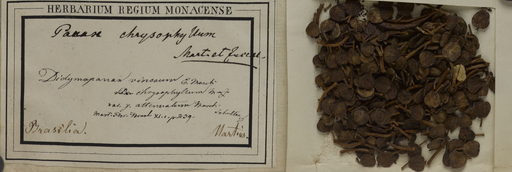 HERBARIUM REGIUM MONACENSE
Panax chrysophyllum
Mart. et Zucc.
Didymopanax vinosum E. March.
chrysophyllum Mart.
var. γ. attenuatum March.
Mart. Flor. Brasil. XI. 1. p. 239.
Brasilia.
Martius.